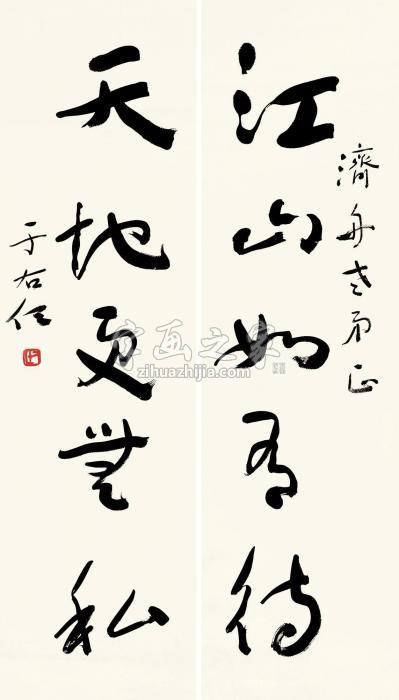 濟舟老弟正
江山如有待
天地更無私
于右任
字画之家
zihuazhijia.com